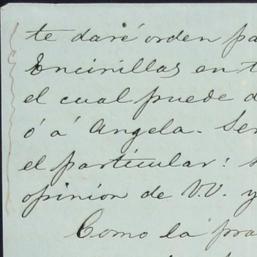 te daré orden pa
Encinillas en t
el cual puede d
ó á Angela. Ser
el particular: s
opinion de V.V. y
Como la pra